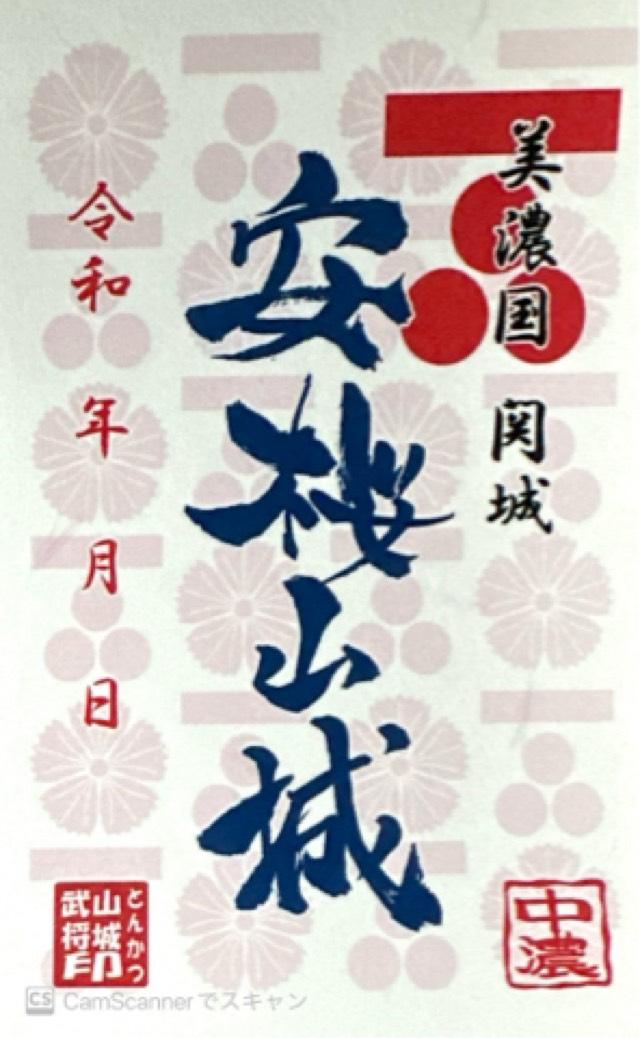 美濃国 関城
安桜山城
令和 年 月 日
中濃
とんかつ
山城
武将印
CS CamScannerでスキャン